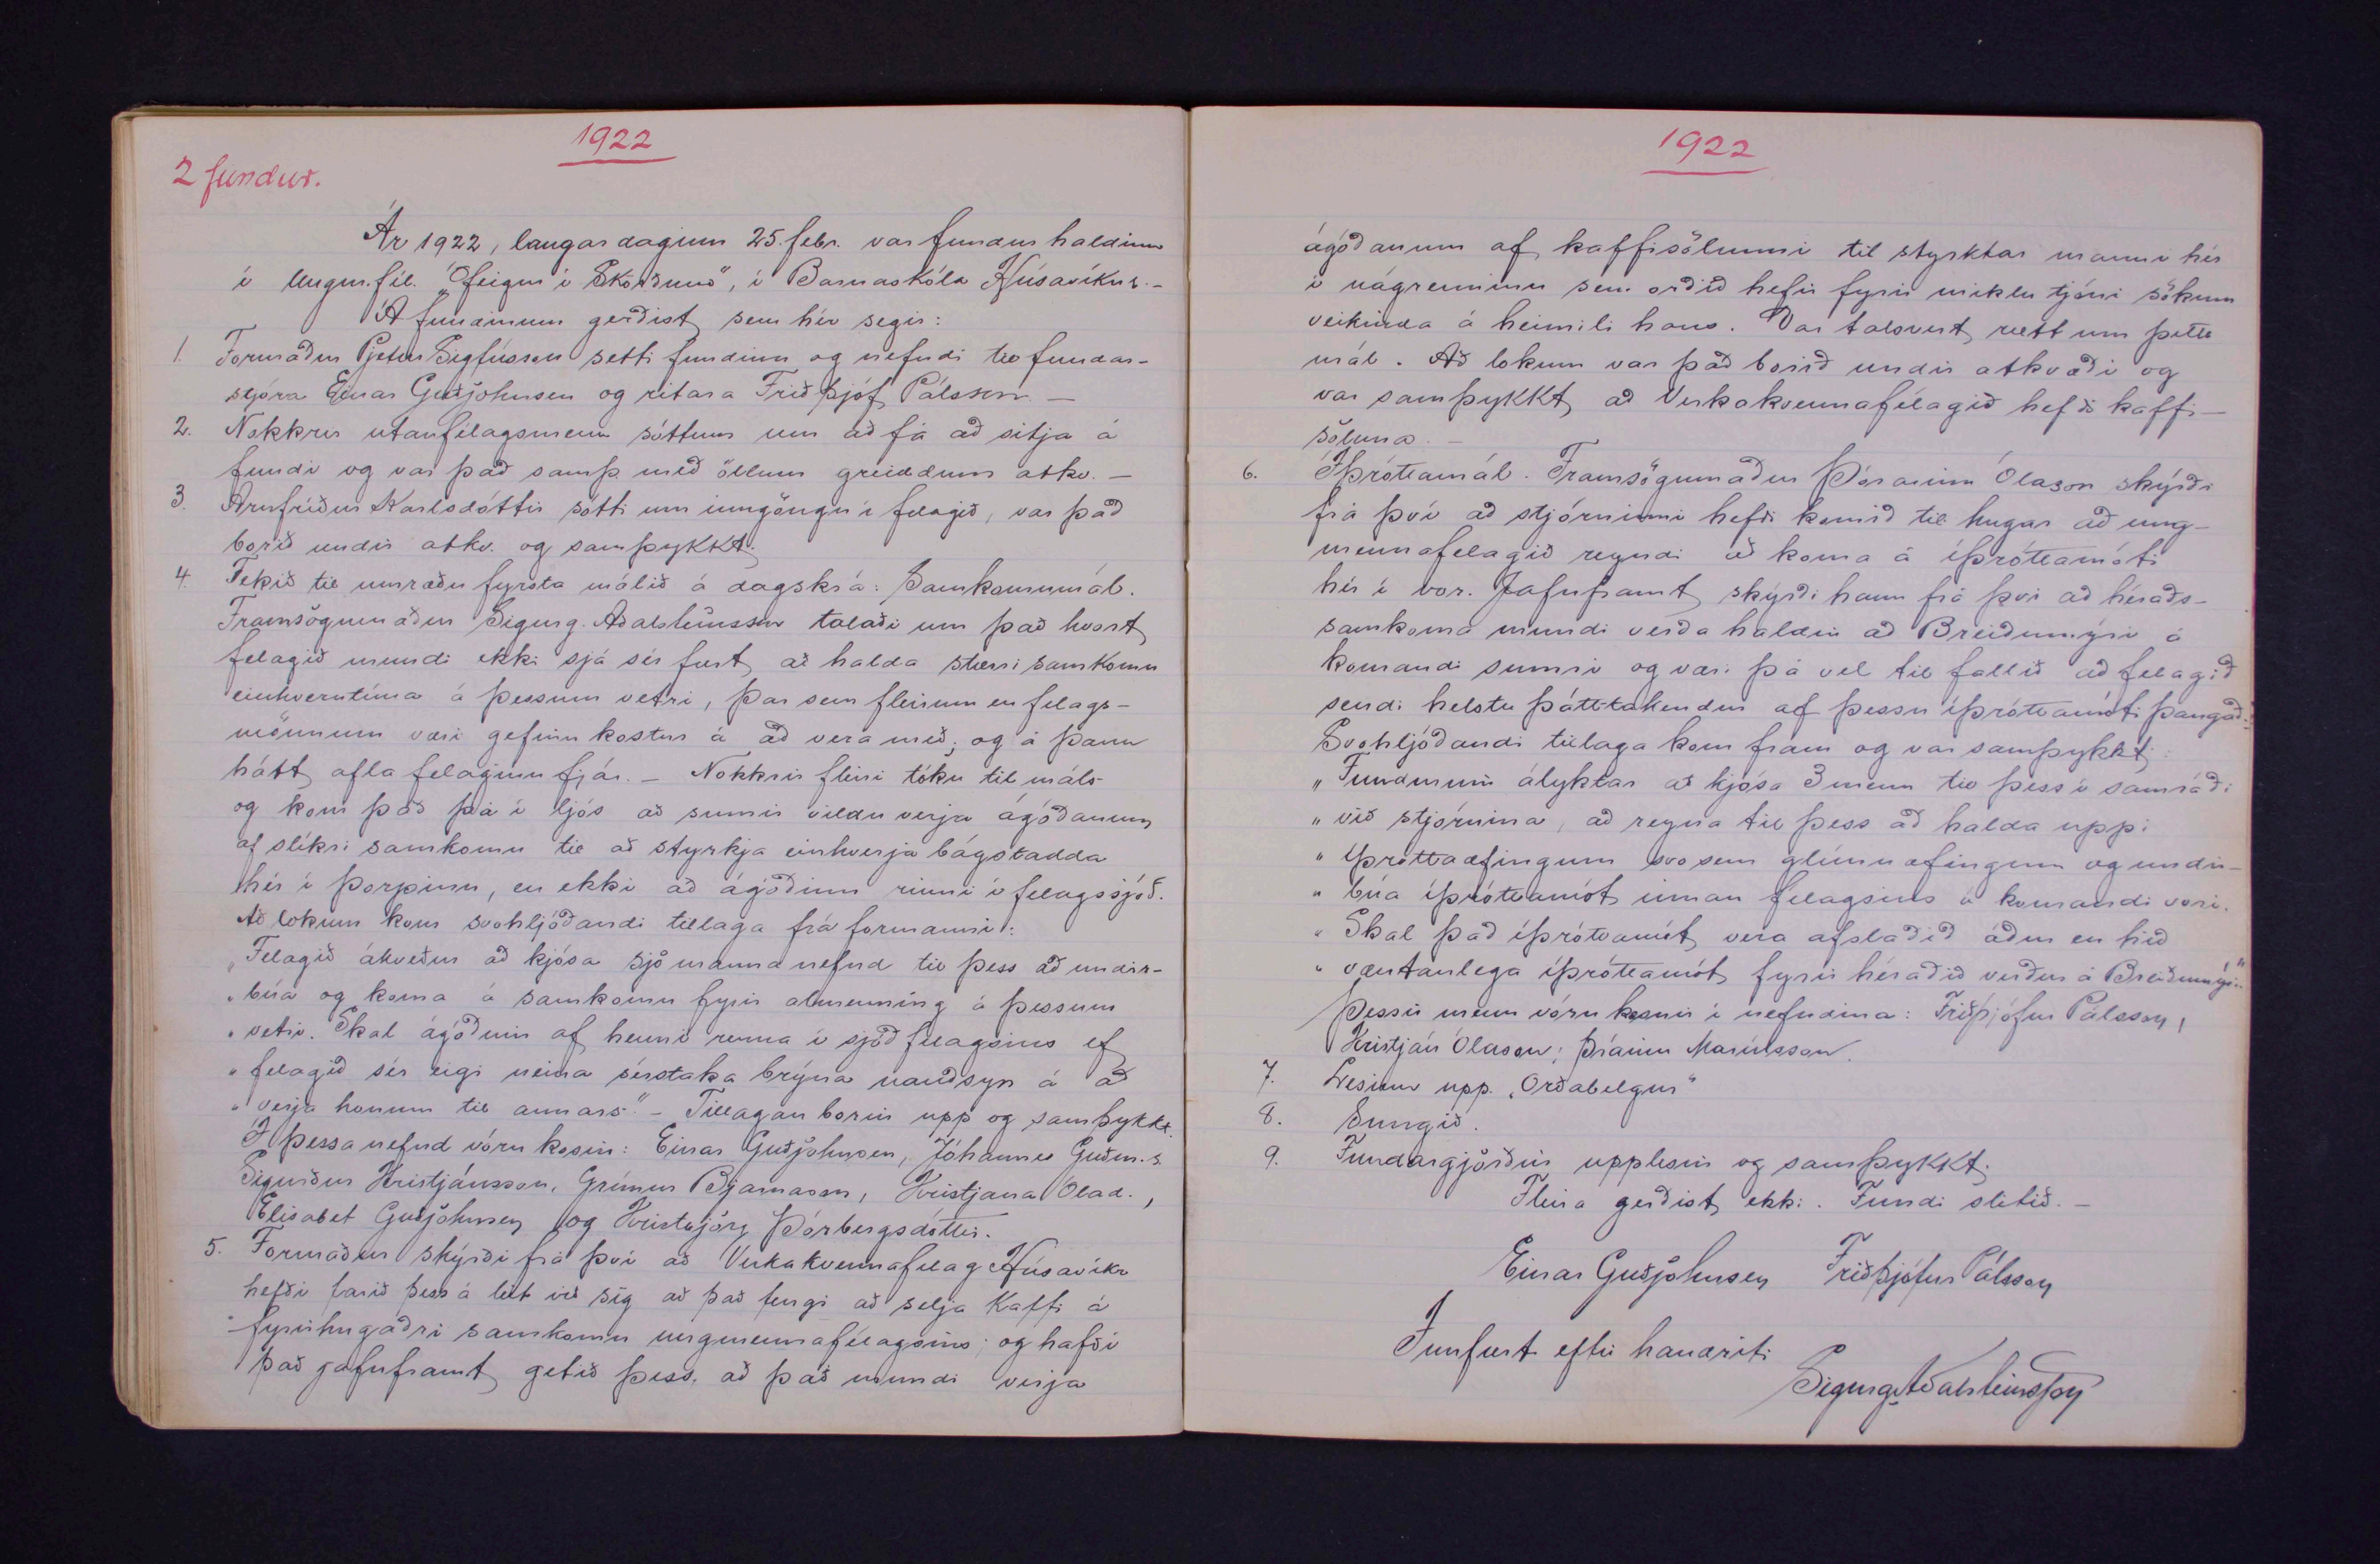 1922
2 fundur.
Ár 1922, laugardaginn 25. febr. var fundur haldinn
í Ungm.fél. „Ófeigur í Skörðum", í Barnaskóla Húsavíkur. -
Á fundinum gerðist sem hér segir:
1. Formaður Pjetur Sigfússon setti fundinn og nefndi til fundar-
stjóra Einar Guðjohnsen og ritara Friðþjóf Pálsson -
2. Nokkrir utanfélagsmenn sóttum um að fá að sitja á
fundi og var það samþ. með öllum greiddum atkv. -
3. Arnfríður Karlsdóttir sótti um inngöngu í felagið, var það
borið undir atkv. og samþykkt.
4. Tekið til umræðu fyrsta málið á dagskrá: Samkomumál.
Framsögumaður Sigurg. Aðalsteinsson talaði um það hvort
felagið mundi ekki sjá sér fært að halda stærri samkomu
einhverntíma á þessum vetri, þar sem fleirum en felags-
mönnum væri gefinn kostur á að vera með; og á þann
hátt afla felaginu fjár. - Nokkrir fleiri tóku til máls
og kom það þá í ljós að sumir vildu verja ágóðanum
af slíkri samkomu til að styrkja einhverja bágstadda
hér í þorpinu, en ekki að ágóðinn rinni í felagssjóð.
Að lokum kom svohljóðandi tillaga frá formanni:
„Felagið ákveður að kjósa sjö manna nefnd til þess að undir-
„búa og koma á samkomu fyrir almenning á þessum
„vetri. Skal ágóðinn af henni renna í sjóð felagsins ef
„felagið sér eigi neina sérstaka brýna nauðsyn á að
„verja honum til annars." - Tillagan borin upp og samþykkt.
Í þessa nefnd vóru kosin: Einar Guðjohnsen, Jóhannes Guðm.s.
Sigurður Kristjánsson, Grímur Bjarnason, Kristjana Olad.,
Elisabet Guðjohnsen og Kristbjörg Þórbergsdóttir.
5. Formaður skýrði frá því að Verkakvennafelag Húsavíkr
hefði farið þess á leit við sig að það fengi að selja Kaffi á
fyrirhugaðri samkomu ungmennafélagsins; og hafði
það jafnframt getið þess, að það mundi verja
1922
ágóðanum af kaffisölunni til styrktar manni hér
í nágrenninu sem orðið hefir fyrir miklu tjóni sökum
veikinda á heimili hans. Var talsvert rætt um þetta
mál. Að lokum var það borið undir atkvæði og
var samþykkt að Verkakvennafélagið hefði kaffi-
söluna. -
6. Íþróttamál. Framsögumaður Þórarinn Ólason skýrði
frá því að stjórninni hefði komið til hugar að ung-
mennafelagið reyndi að koma á íþróttamóti
hér í vor. Jafnframt skýrði hann frá því að héraðs-
samkoma mundi verða haldin að Breiðumýri á
komandi sumri og væri þá vel til fallið að felagið
sendi helstu þátttakendur af þessu íþróttamóti þangað.
Svohljóðandi tillaga kom fram og var samþykkt:
„Fundurinn ályktar að kjósa 3 menn til þess í samráði
„við stjórnina, að reyna til þess að halda uppi
„íþróttaæfingum svo sem glímuæfingum og undir-
„búa íþróttamót innan félagsins á komandi vori.
„Skal það íþróttamót vera afstaðið áður en hið
„væntanlega íþróttamót fyrir héraðið verður á Breiðumýri."
Þessir menn vóru kosnir í nefndina: Friðþjófur Pálsson,
Kristján Ólason; Þráinn Maríusson.
7. Lesinn upp „Orðabelgur"
8. Sungið.
9. Fundargjörðin upplesin og samþykkt.
Fleira gerðist ekki. Fundi slitið. -
Einar Guðjohnsen Friðþjófur Pálsson
Innfært eftir handriti
Sigurg. Aðalsteinsson